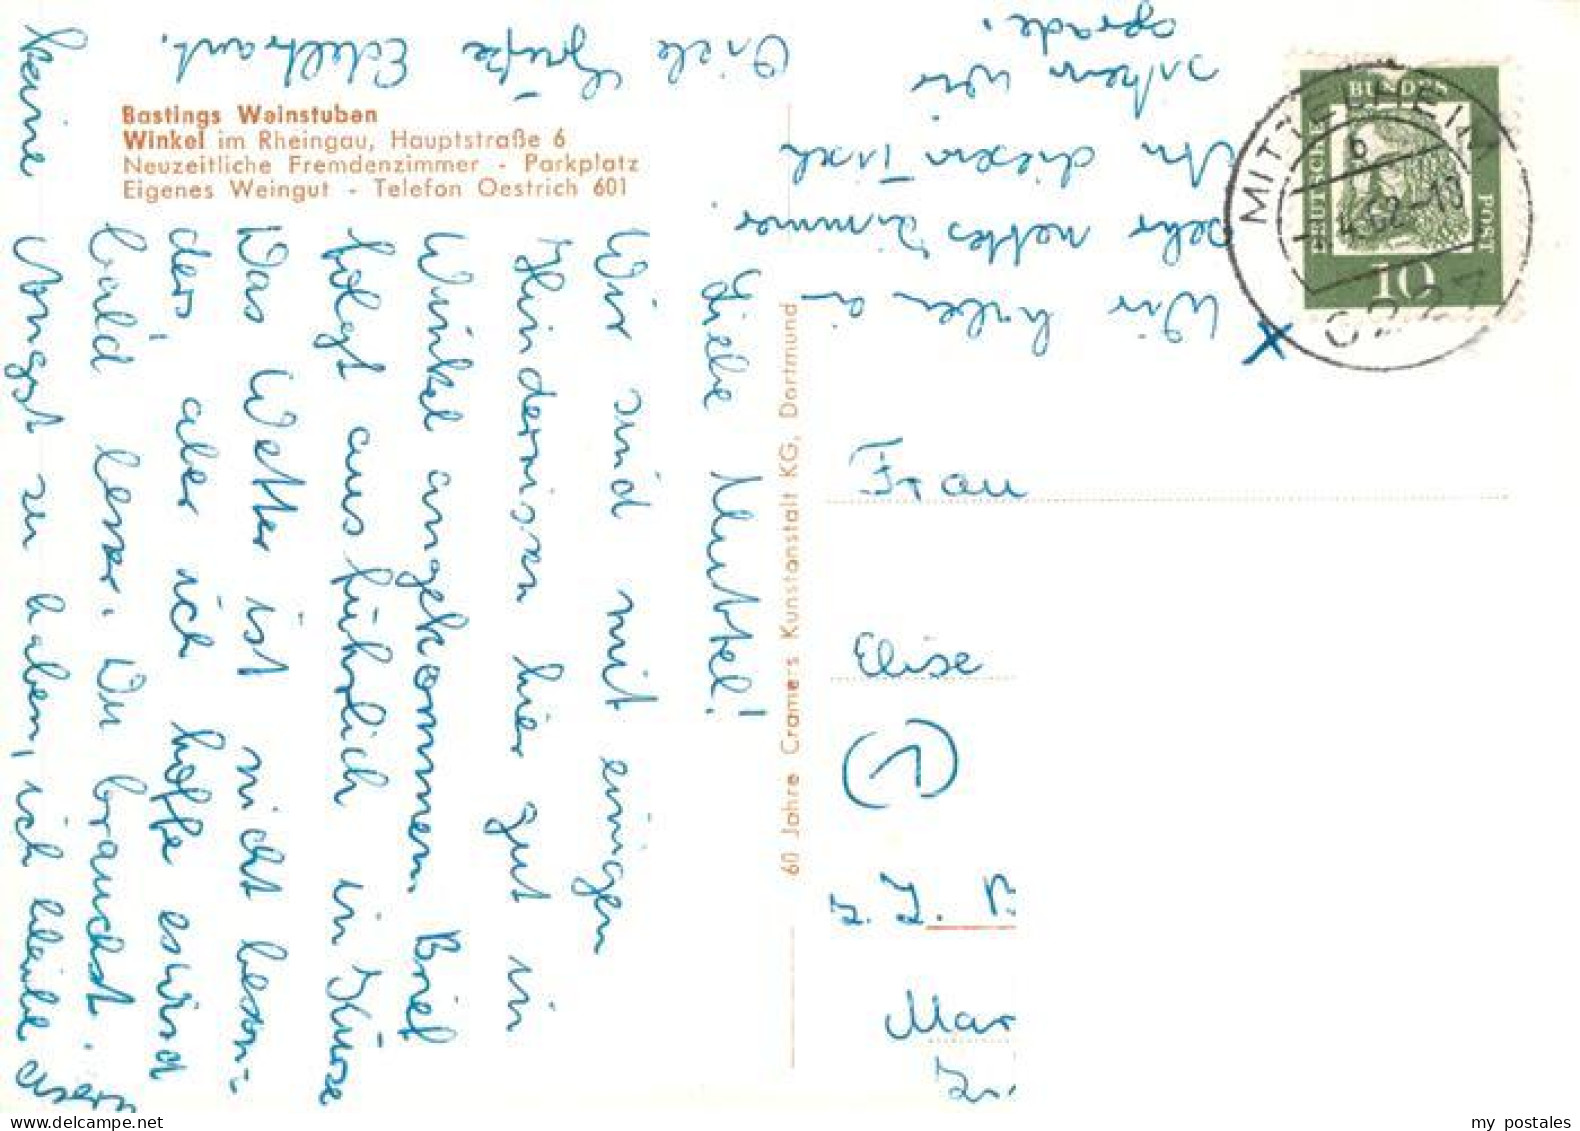 Bastings Weinstuben
Winkel im Rheingau, Hauptstraße 6
Neuzeitliche Fremdenzimmer - Parkplatz
Eigenes Weingut - Telefon Oestrich 601
Liebe Muttel!
Wir sind mit einigen
Hindernissen hier gut in
Winkel angekommen. Brief
folgt ausführlich in Kürze
Das Wetter ist nicht beson-
ders, aber ich hoffe es wird
bald besser. Du brauchst
keine Angst zu haben, ich bleibe
Viele Grüße Edeltraut.
Wir haben ein
sehr nettes Zimmer
An diesem Tisch
sitzen wir
gerade.
60 Jahre Cramers Kunstanstalt KG, Dortmund
DEUTSCHE
BUNDES
POST
10
MITTELHEIM
b
4.62-10
Frau
Elise
z. Z.
Mar
my postales